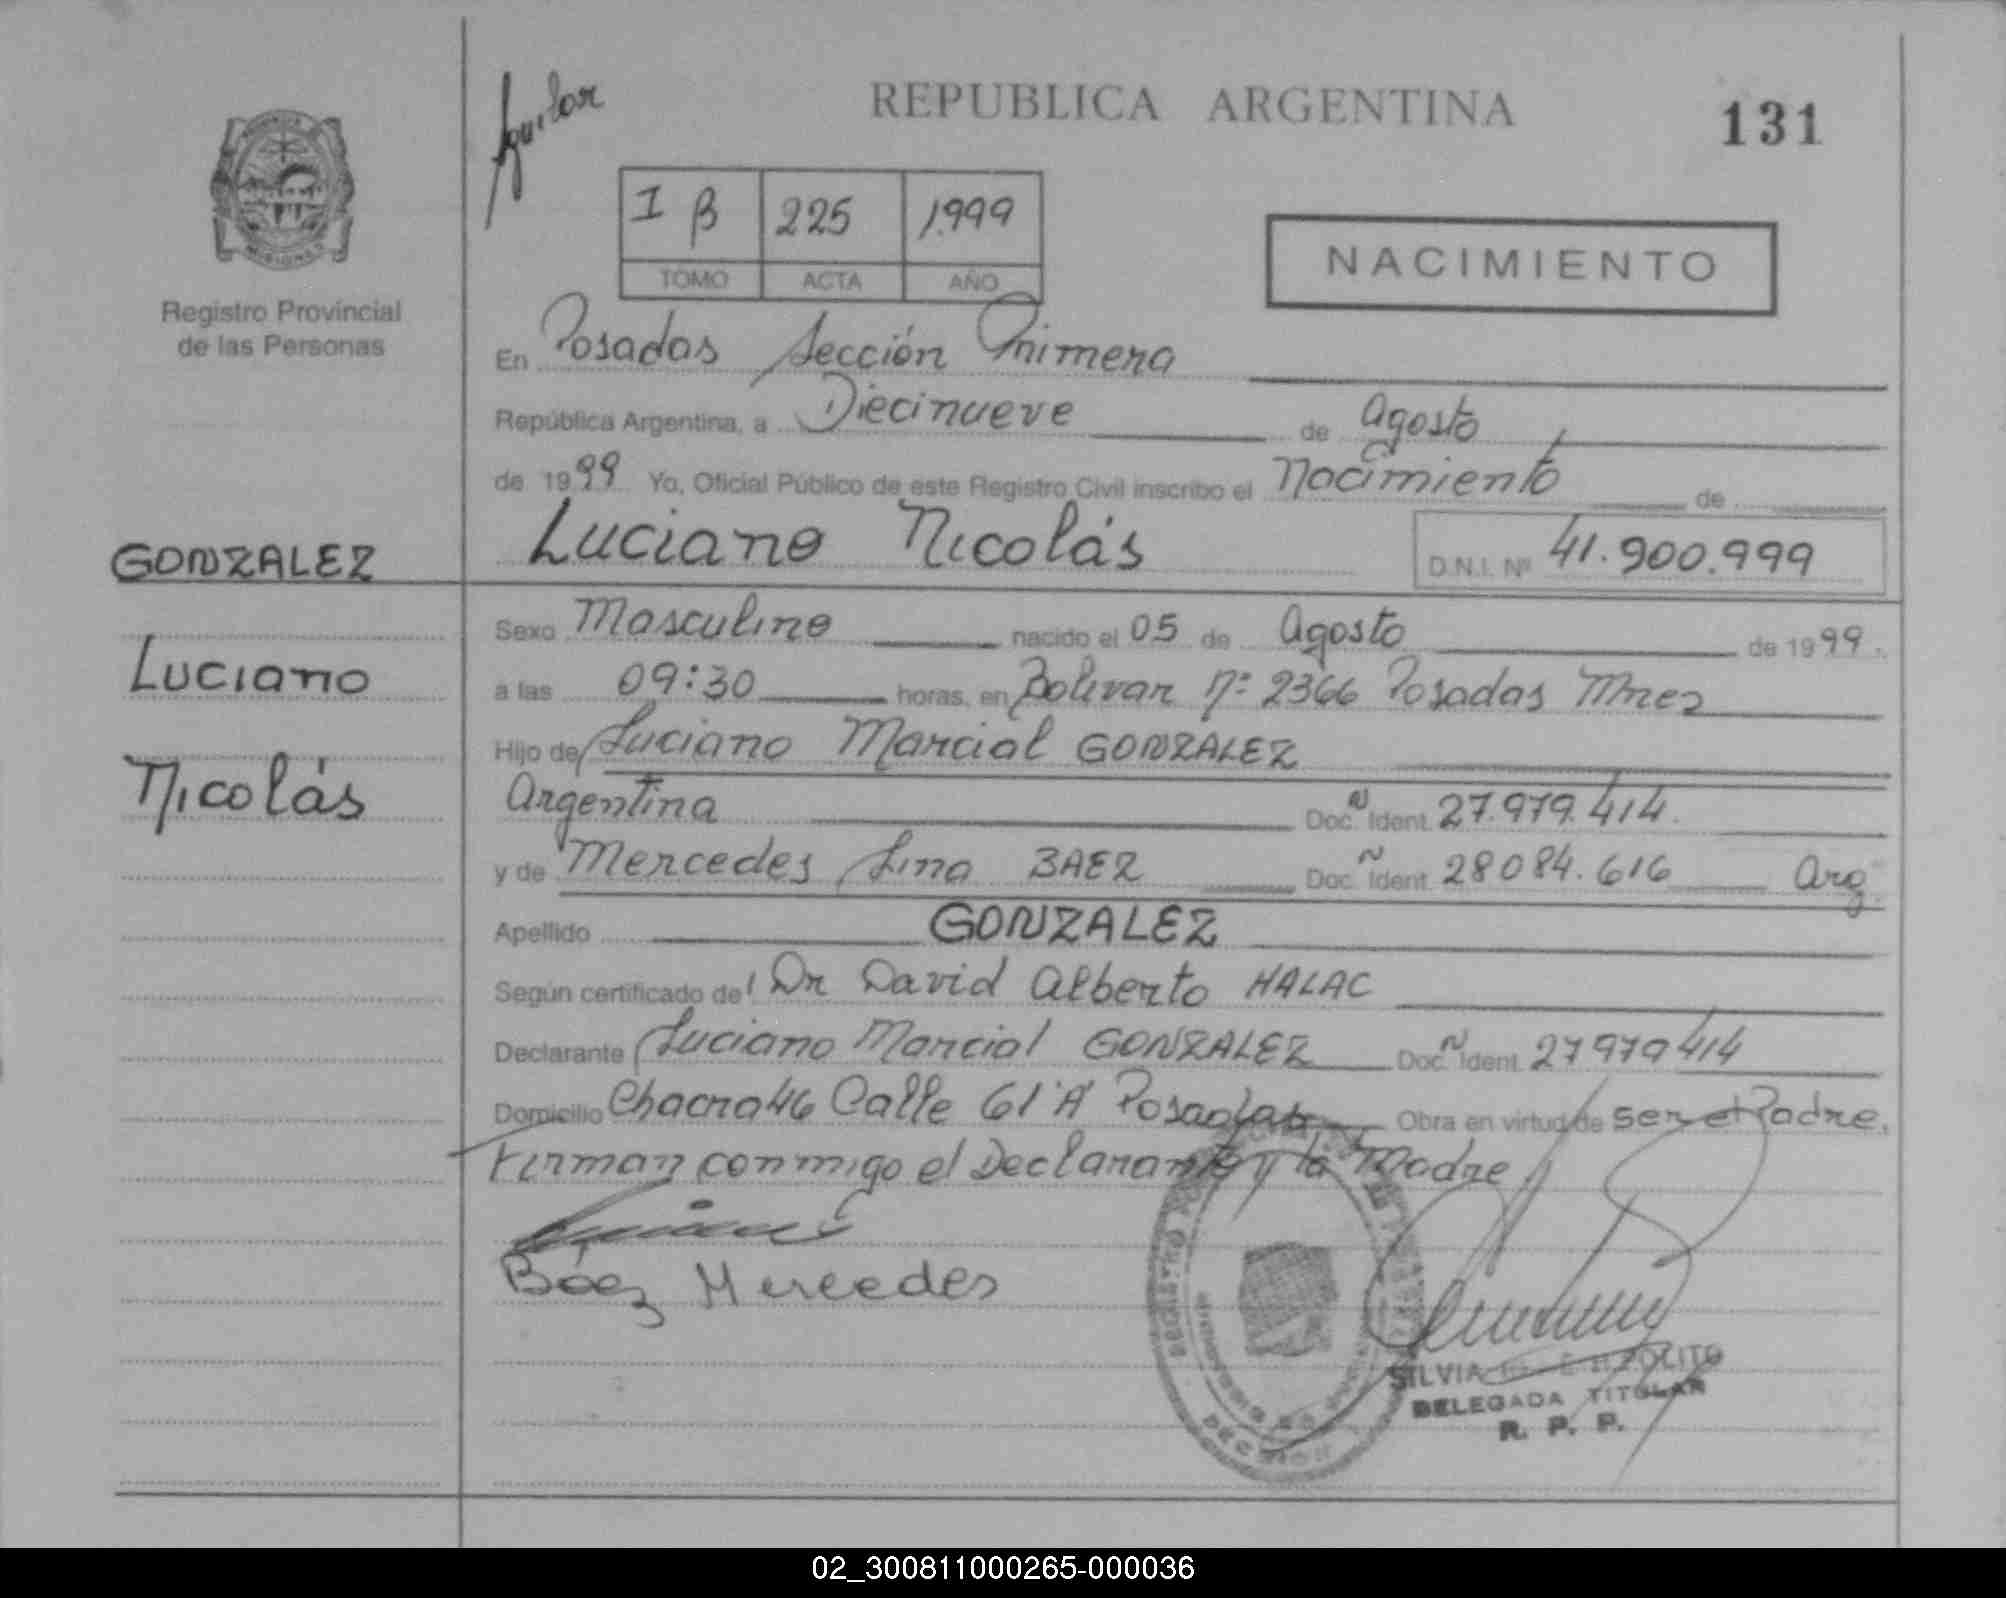 Aguilar
REPUBLICA ARGENTINA
131
I B 225 1999
TOMO ACTA AÑO
NACIMIENTO
Registro Provincial
de las Personas
En Posadas Sección Primera
República Argentina, a Diecinueve de Agosto
de 1999 Yo, Oficial Público de este Registro Civil inscribo el Nacimiento de
GONZALEZ
Luciano Nicolás
D.N.I. Nº 41.900.999
Luciano
Nicolás
Sexo Masculino nacido el 05 de Agosto de 1999.
a las 09:30 horas, en Bolivar Nº 2366 Posadas Mnes
Hijo de Luciano Marcial GONZALEZ
Argentina Doc. Ident. 27.979.414.
y de Mercedes Lina BAEZ Doc. Ident. 28084.616 Arg
Apellido GONZALEZ
Según certificado del Dr David Alberto HALAC
Declarante Luciano Marcial GONZALEZ Doc. Ident. 27979414
Domicilio Chacra 46 Calle 61 "A" Posadas Obra en virtud de ser el Padre.
Firman conmigo el Declarante y la Madre
Báez Mercedes
SILVIA
DELEGADA TITULAR
R. P. P.
02_300811000265-000036